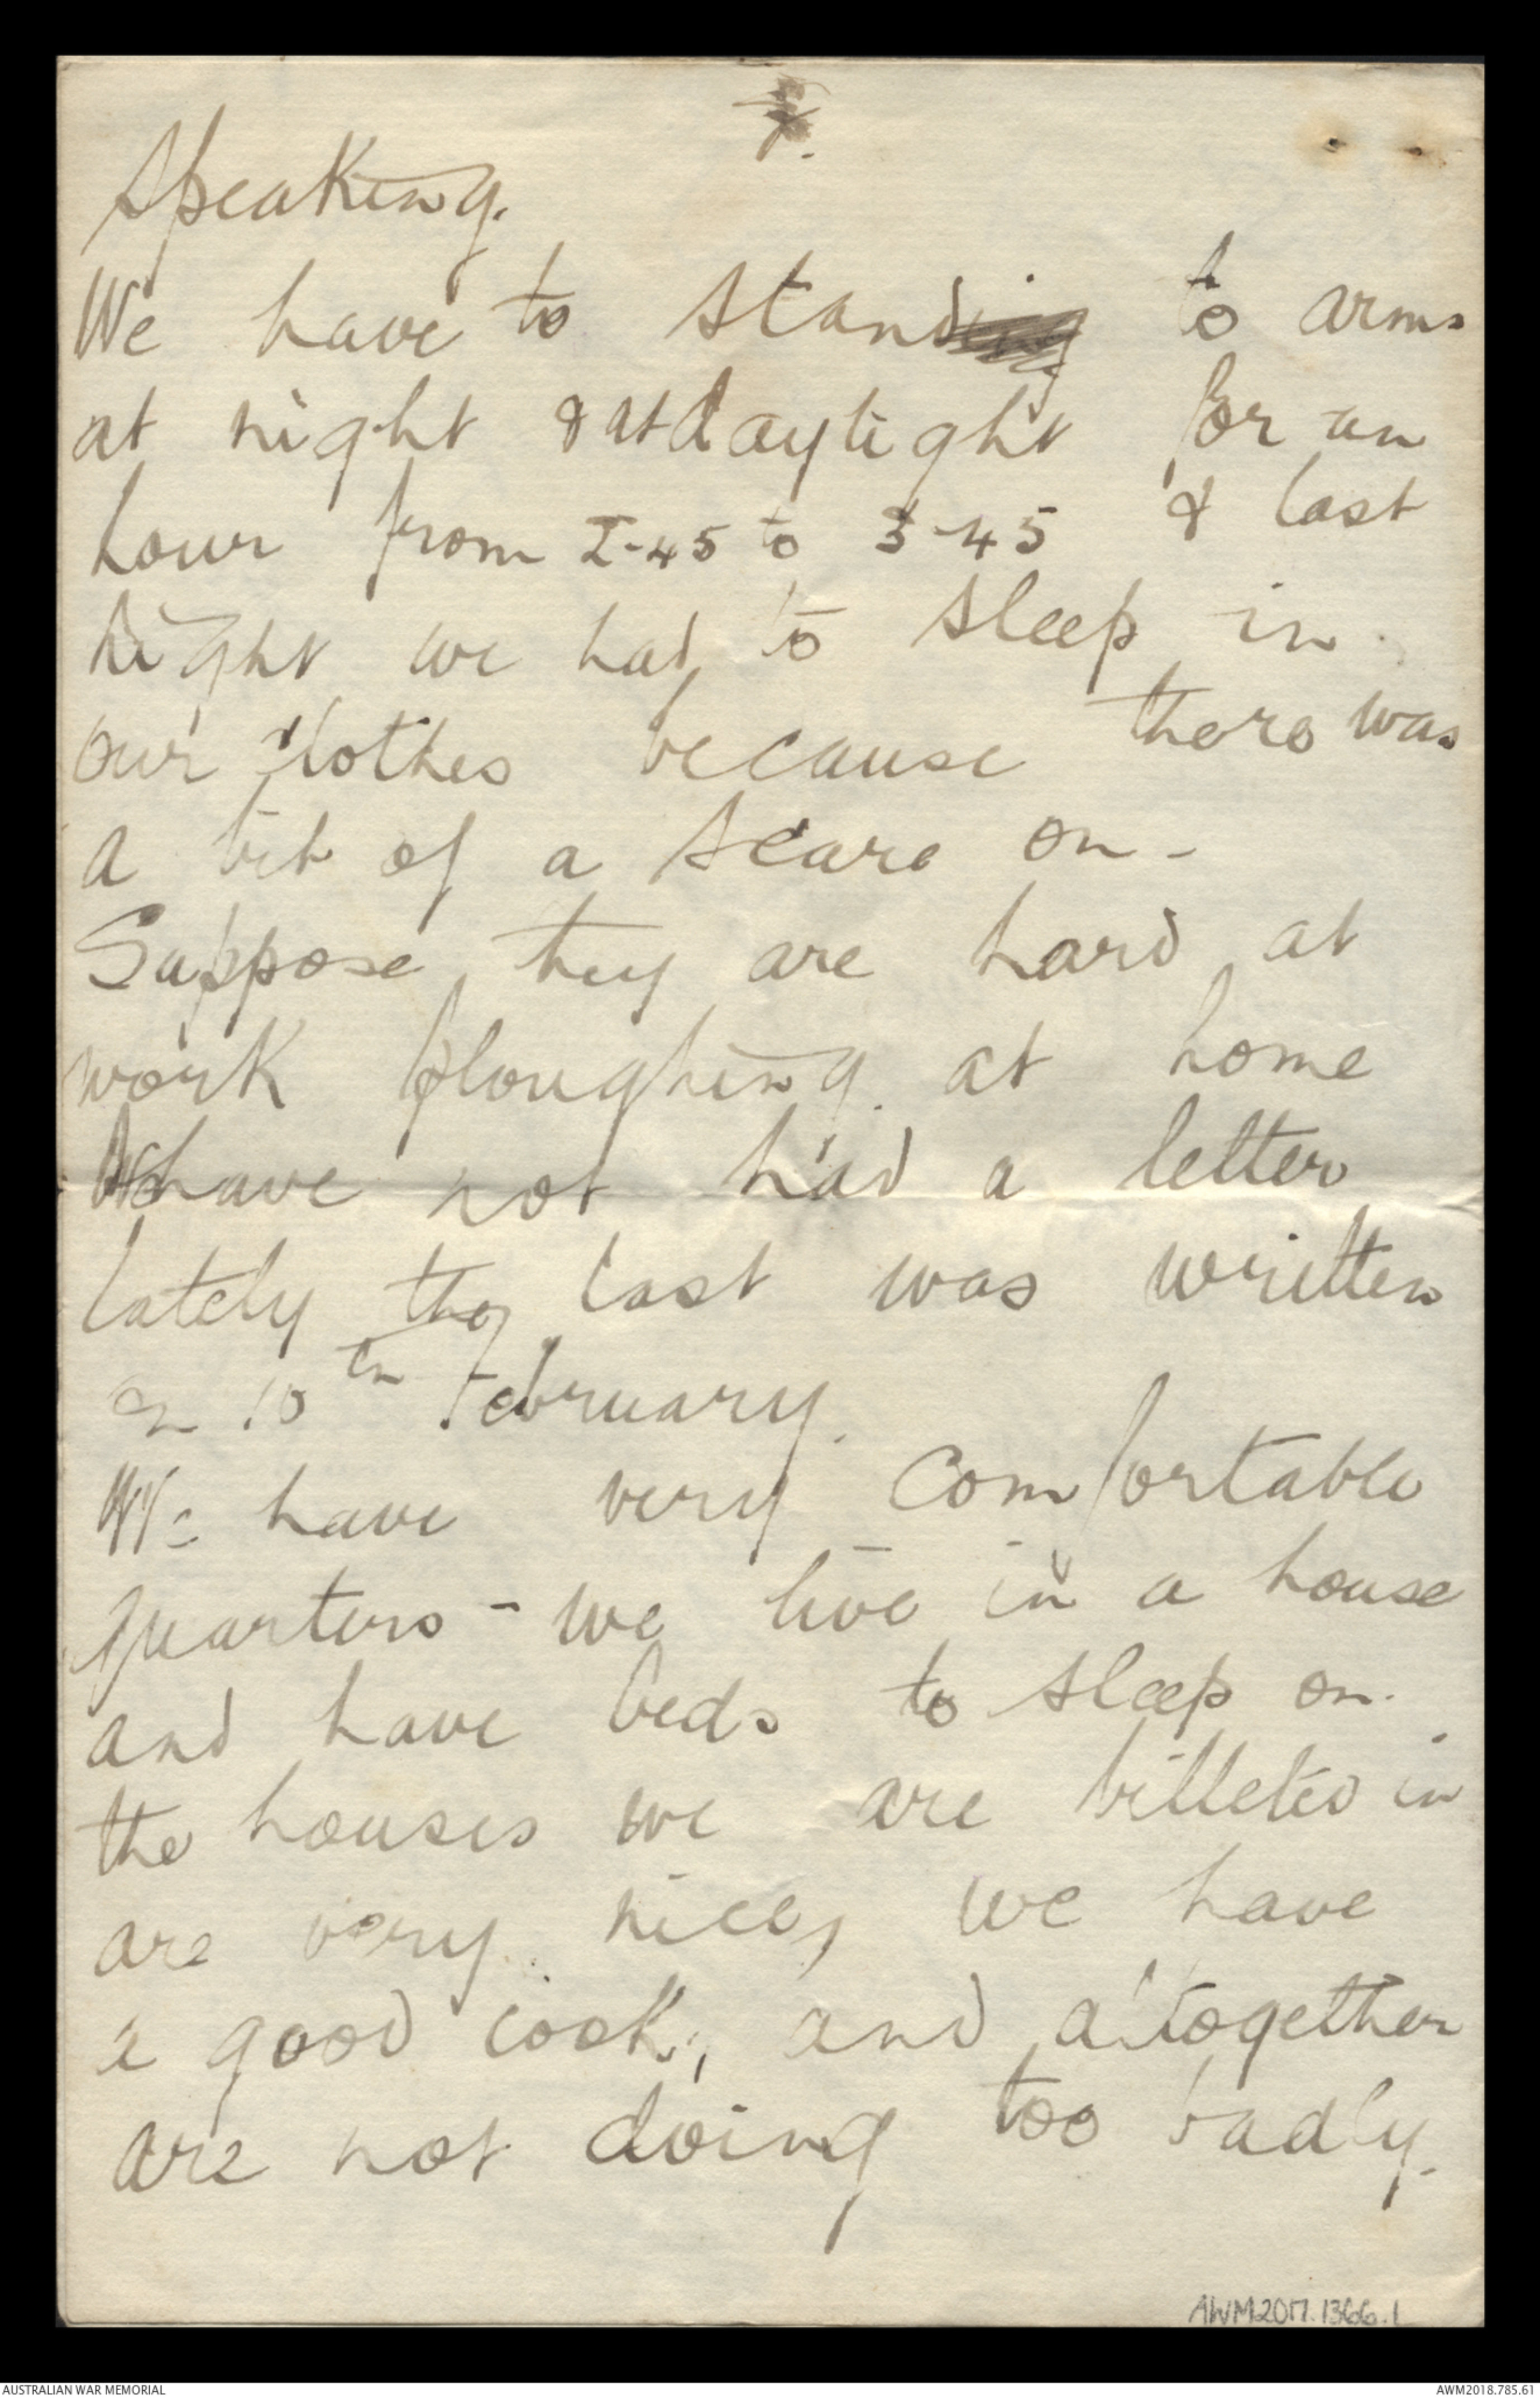 7.
speaking.
We have to stand to arms
at night & at daylight for an
hour from 2-45 to 3-45 & last
night we had to sleep in
our clothes because there was
a bit of a scare on -
Suppose they are hard at
work ploughing at home
have not had a letter
lately the last was written
on 10th February.
We have very comfortable
quarters - we live in a house
and have beds to sleep on.
the houses we are billeted in
are very nice, we have
a good cook, and altogether
are not doing too badly.
AWM2017.1366.1
AUSTRALIAN WAR MEMORIAL
AWM2018.785.61